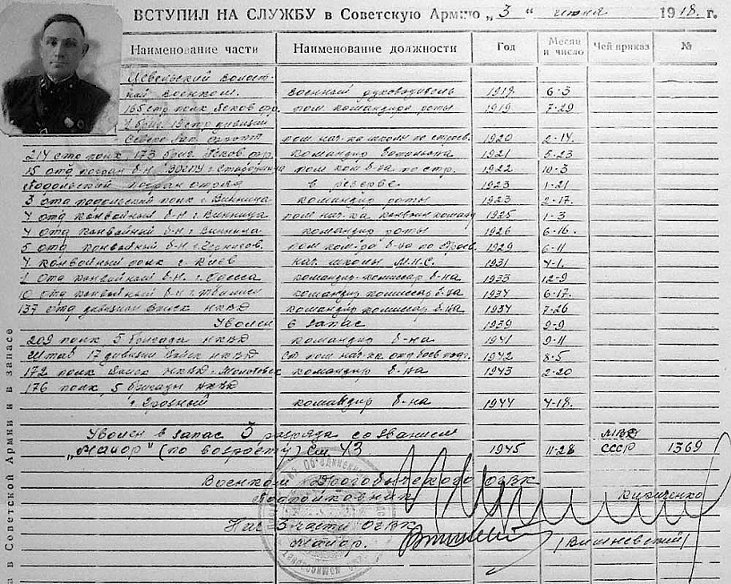 ВСТУПИЛ НА СЛУЖБУ в Советскую Армию „3“ июня 1918. г.
Наименование части Наименование должности Год Месяц и число Чей приказ №
волост-
кий военком. военный руководитель 1918 6-3
165 стр полк Псков пом. командира роты 1919 7-29
1920 2-14.
214 стр полк 173 бриг. Псков командир батальона 1921 8-23
15 отд погран б-н пом ком б-на по стр. 1922 10-3
погран отряда в резерве. 1923 1-21
3 отд полк г Винница командир роты 1923 2-17.
4 отд конвойный б-н г Винница пом нач-ка конвоин команд 1925 1-3
4 отд конвойный б-н г Винница командир роты 1926 6-16.
5 отд конвойный б-н г. пом ком-ра б-на по 1929 6-11
4 конвойный полк г Киев нач. школы М.Н.С. 1931 4-1.
отд конвойный б-н. г. Одесса командир-комиссар б-на 1933 12-9
10 отд конвойный б-н г Тбилиси командир комиссар б-на 1934 6-17.
137 отд дивизион Войск НКВД командир комиссар б-на 1937 7-26
Уволен в запас 1939 9-9
209 полк 5 бригада НКВД командир б-на 1941 9-11
Штаб 17 дивизии Войск НКВД ст пом нач-ка отд боев подг. 1942 8-5
172 полк Войск НКВД г. командир б-на 1943 2-20
176 полк 5 бригады НКВД
г. Грозный командир б-на 1944 4-18.
Уволен в запас 3 разряда со званием
„майор“ (по возрасту) См 43 1945 11-28 МВД СССР 1369
Военком Дрогобычского ОГВК
Подполковник Кириченко
Нач 3 части ОГВК
майор. (Вишневский)
в Советской Армии и в запасе